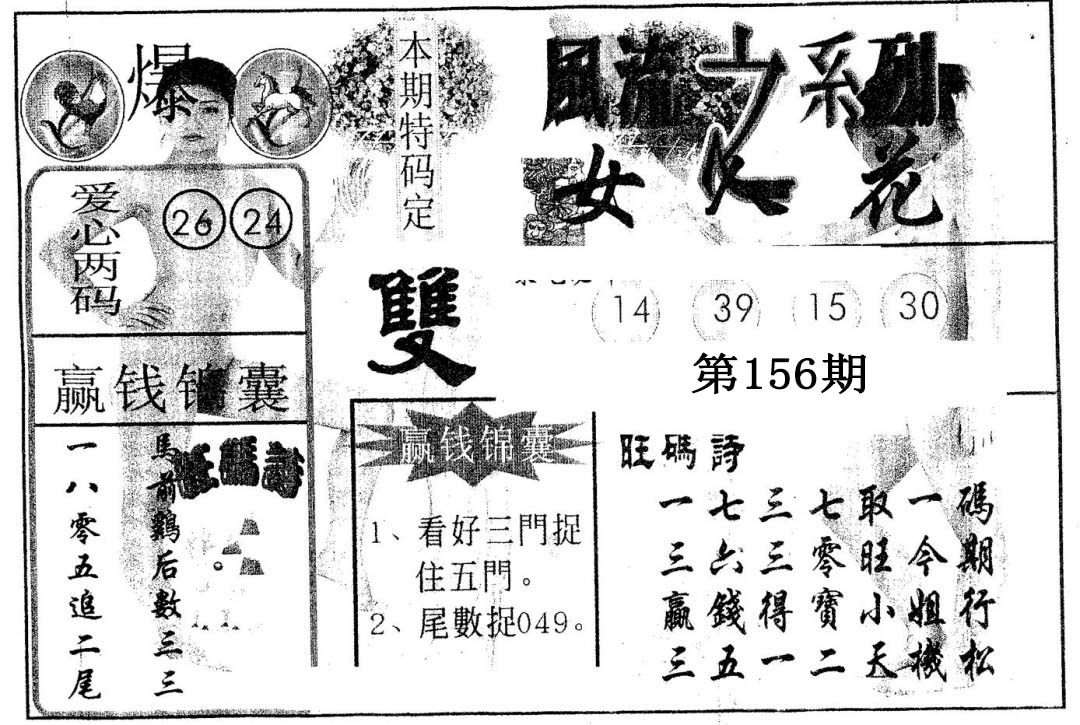 爆
本期特码定
雙
風流之系列
女人花
爱心两码
26 24
14 39 15 30
第156期
赢钱锦囊
旺碼詩
馬前鷄后數三三
一八零五追二尾
赢钱锦囊
1、看好三門捉
住五門。
2、尾數捉049。
旺碼詩
碼期行松
一今姐機
取旺小天
七零寶二
三三得一
七六錢五
一三贏三